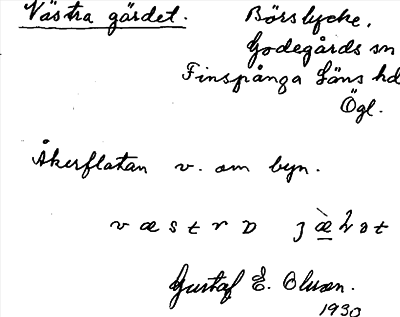 Västra gärdet.
Börslycke.
Godegårds sn
Finspånga läns hd
Ögl.
Åkerflatan v. om byn.
Gustaf E. Olsson.
1930